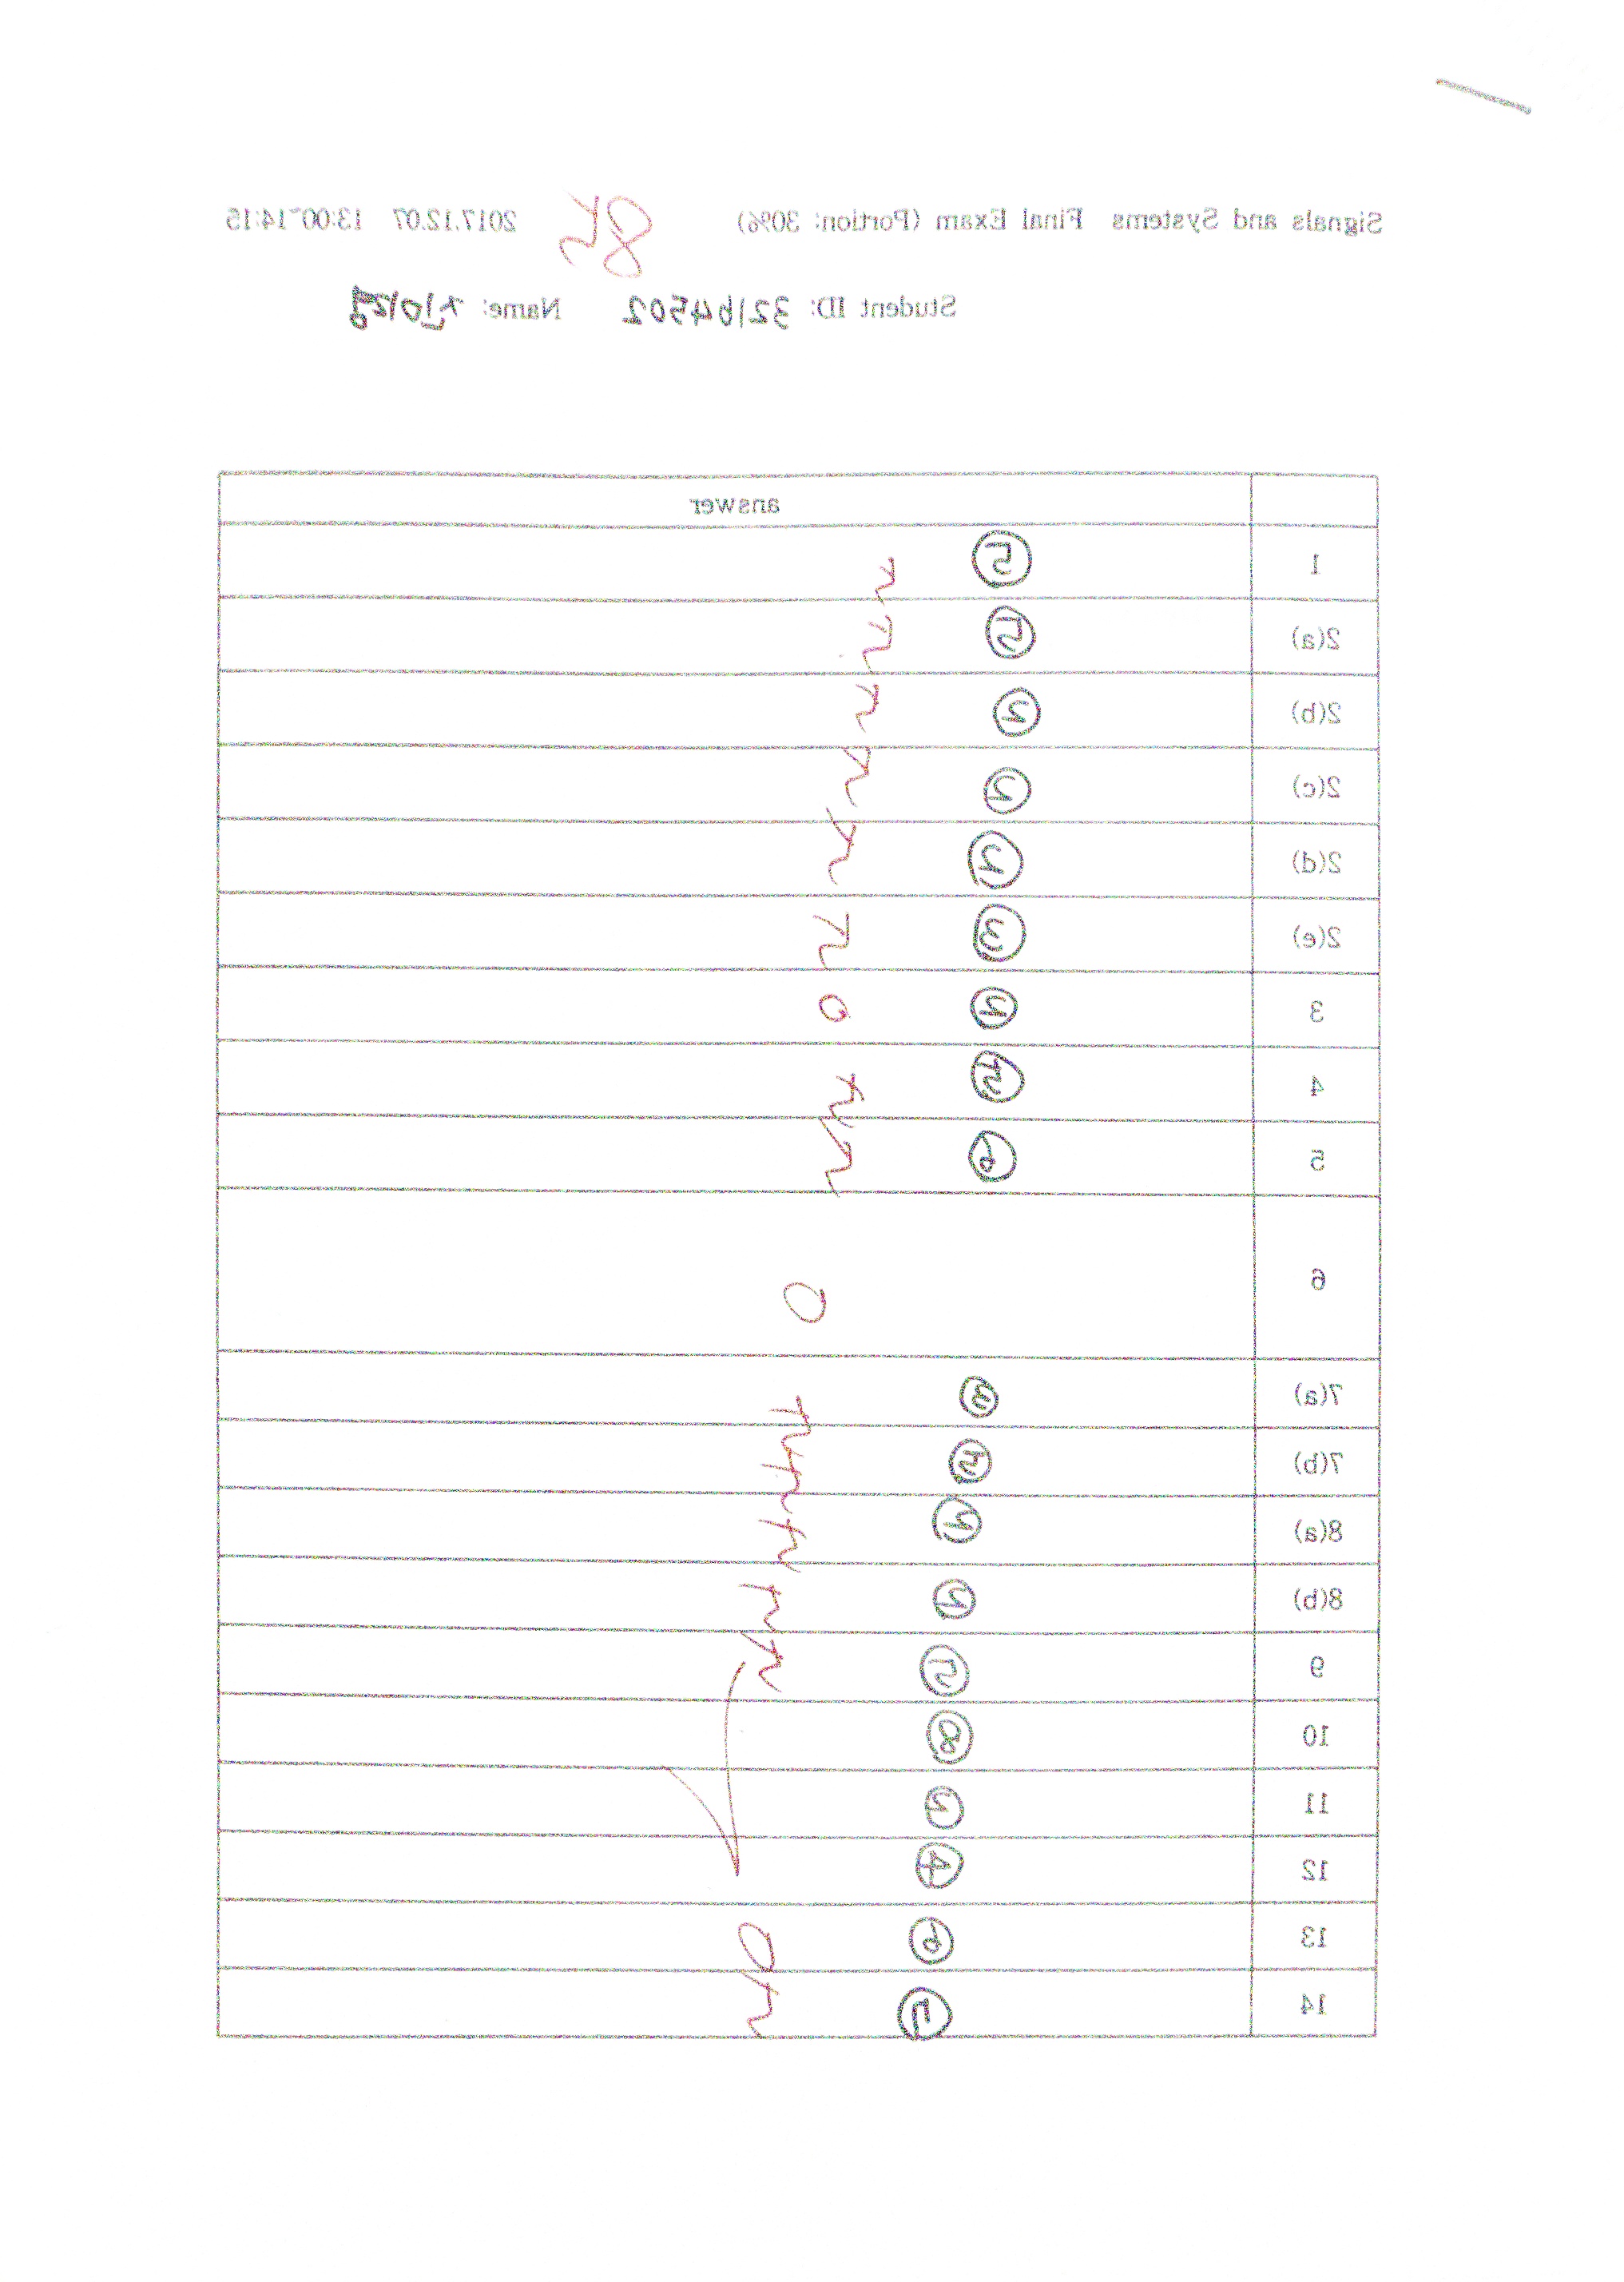 Signals and Systems Final Exam (Portion: 30%) 85 2017.12.07 13:00~14:15
Student ID: 32164502 Name:
answer
1 ⑤ 5
2(a) ⑤ 5
2(b) ④ 5
2(c) ④ 5
2(d) ④ 5
2(e) ③ 5
3 ④ 0
4 ⑤ 5
5 ⑥ 5
6 0
7(a) ③ 5
7(b) 5
8(a) ④ 5
8(b) ④ 5
9 ⑤ 5
10 ⑧
11
12 ④
13 ⑥ 0
14 ⑪ 5